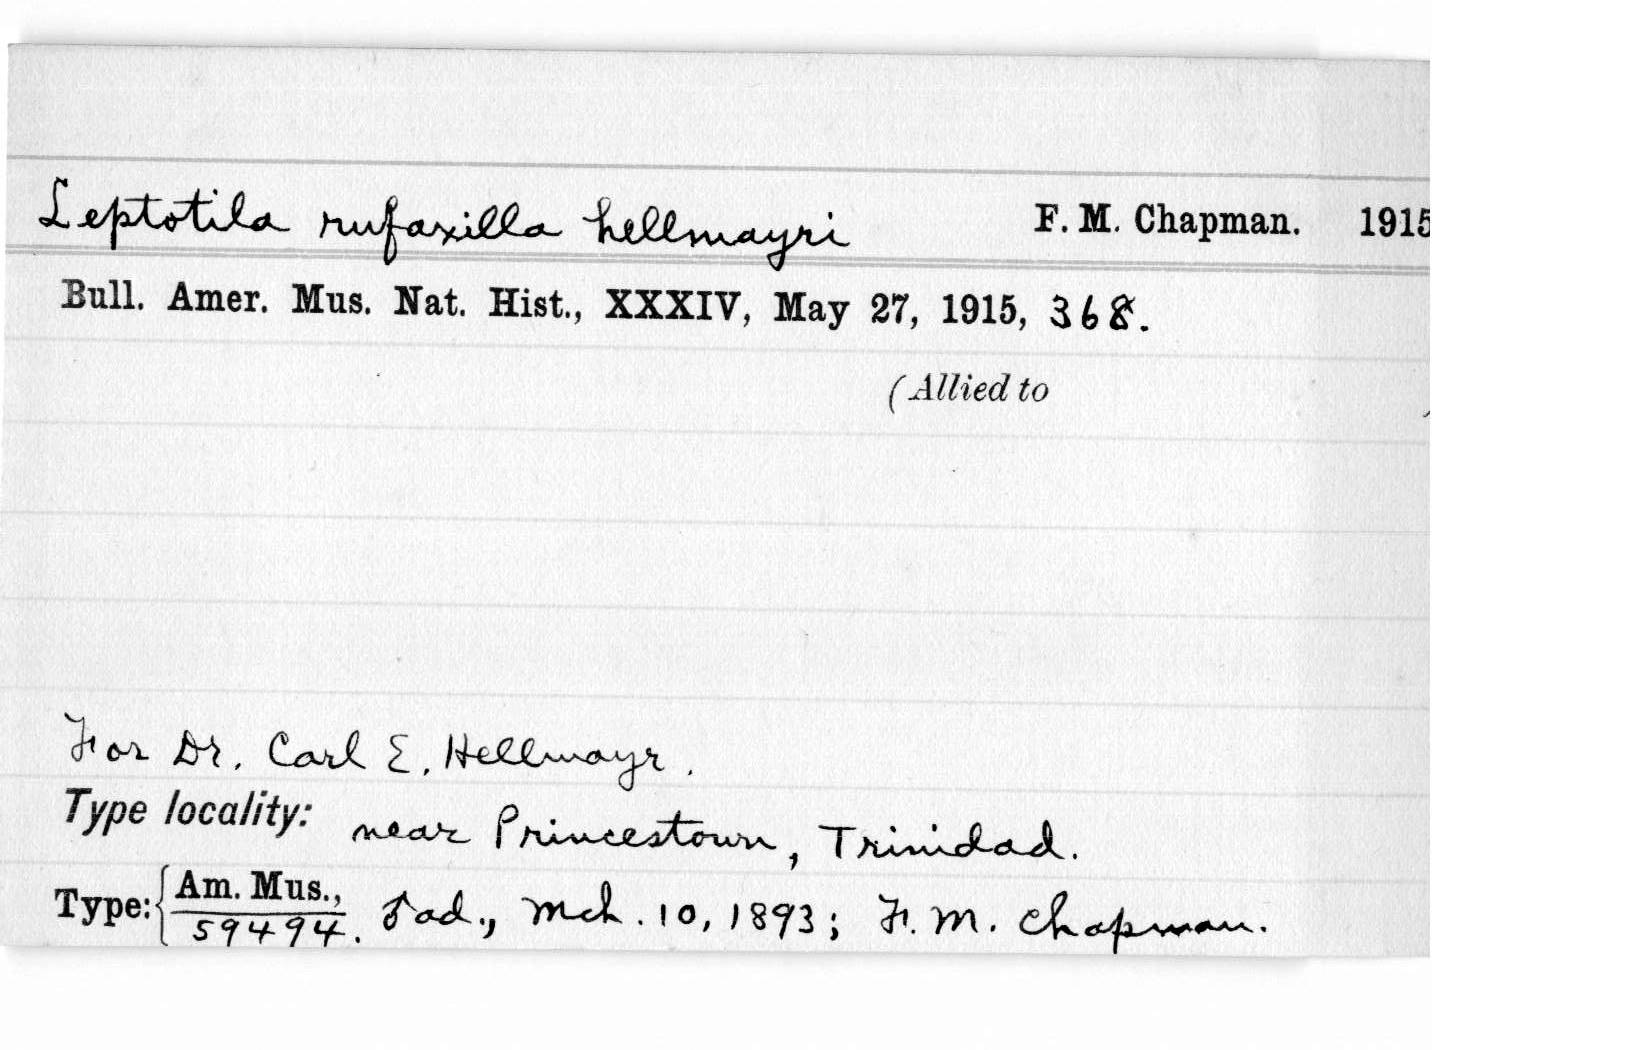 Leptotila rufaxilla hellmayri F. M. Chapman. 1915
Bull. Amer. Mus. Nat. Hist., XXXIV, May 27, 1915, 368.
(Allied to
For Dr. Carl E. Hellmayr.
Type locality: near Princestown, Trinidad.
Type: { Am. Mus., 59494. ♂ ad., Mch. 10, 1893; F. M. Chapman.